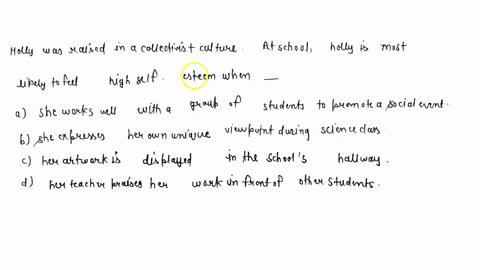 Holly was raised in a collectivist culture. At school, holly is most
likely to feel high self. esteem when __
a) she works well with a group of students to promote a social event.
b) she expresses her own unique viewpoint during science class
c) her artwork is displayed in the school's hallway.
d) her teacher praises her work in front of other students.